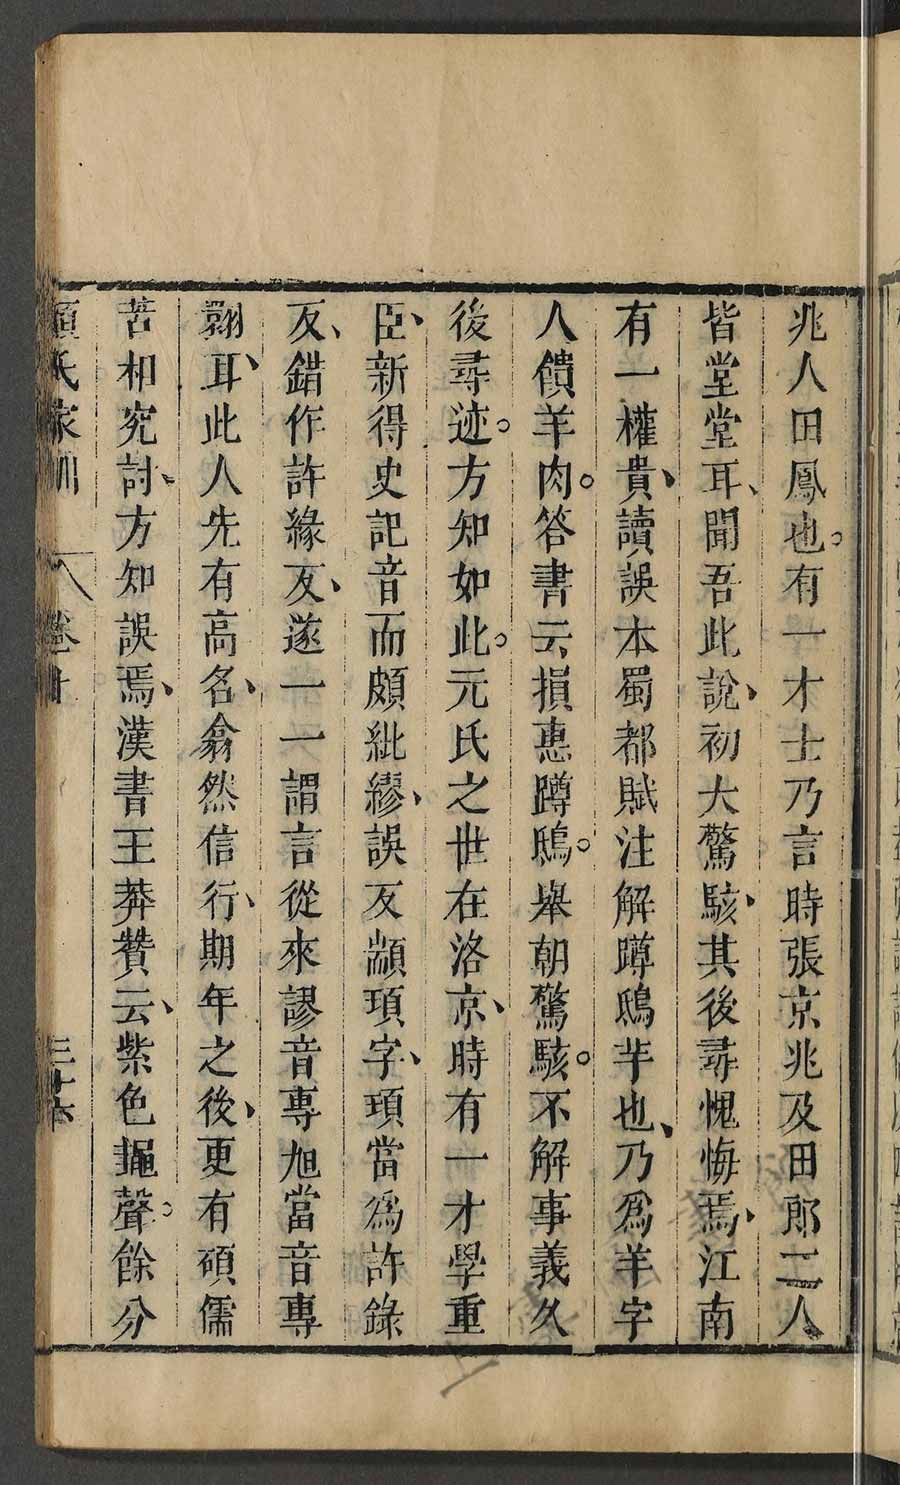 兆人田鳳也。有一才士乃言時張京兆及田郎二人
皆堂堂耳、聞吾此說、初大驚駭、其後尋愧悔焉、江南
有一權貴、讀誤本蜀都賦注解蹲鴟羊也、乃爲羊字
人饋羊肉。答書云損惠蹲鴟。舉朝驚駭。不解事義久
後尋迹。方知如此。元氏之世在洛京、時有一才學重
臣、新得史記音而頗紕繆、誤反顓頊字、頊當爲許錄
反、錯作許緣反、遂一一謂言從來謬音專旭當音專
翾耳、此人先有高名、翕然信行、期年之後、更有碩儒
苦相究討、方知誤焉、漢書王莽贊云、紫色䵷聲。餘分
顏氏家訓 卷中 三十六